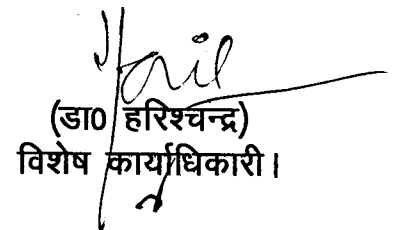 (डा0 हरिश्चन्द्र)
विशेष कार्याधिकारी।